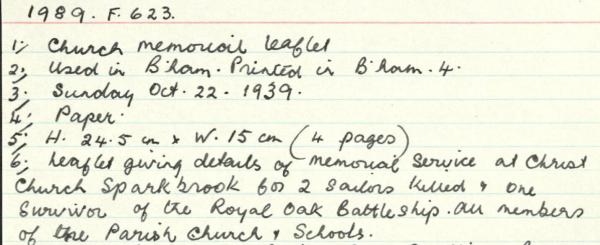 1989. F. 623.
1; Church memorial leaflet
2; Used in B'ham. Printed in B'ham. 4.
3. Sunday Oct. 22. 1939.
4; Paper.
5; H. 24.5 cm x W. 15 cm (4 pages)
6; Leaflet giving details of memorial service at Christ
Church Sparkbrook for 2 sailors killed & one
survivor of the Royal Oak Battleship. All members
of the Parish Church & Schools.